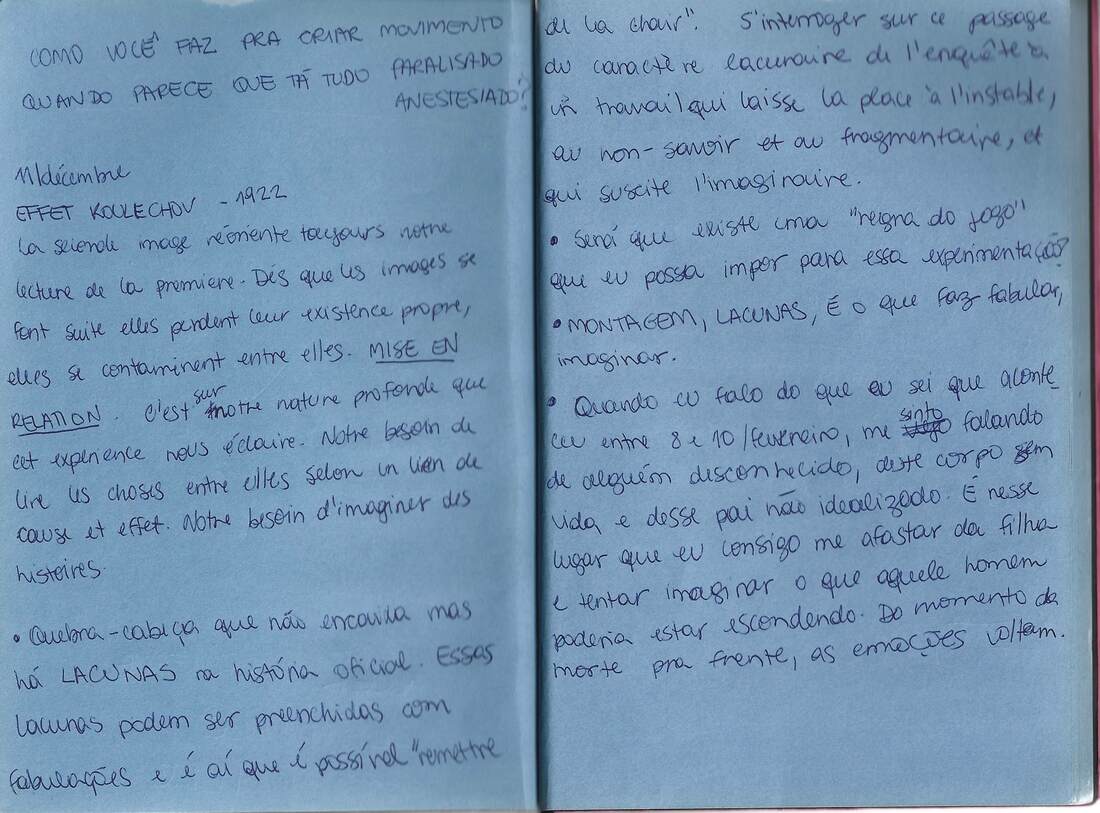 COMO VOCÊ FAZ PRA CRIAR MOVIMENTO
QUANDO PARECE QUE TÁ TUDO PARALISADO
ANESTESIADO?
11/décembre
EFFET KOULECHOV - 1922
La seconde image réoriente toujours notre
lecture de la premiere. Dés que les images se
font suite elles perdent leur existence propre,
elles se contaminent entre elles. MISE EN
RELATION. C'est sur notre nature profonde que
cet experience nous éclaire. Notre besoin de
lire les choses entre elles selon un lien de
cause et effet. Notre besoin d'imaginer des
histoires.
• Quebra-cabeça que não encaixa mas
há LACUNAS na história oficial. Essas
lacunas podem ser preenchidas com
fabulações e é aí que é possível "remettre
de la chair". S'interroger sur ce passage
du caractère lacunaire de l'enquête à
un travail qui laisse la place à l'instable,
au non-savoir et au fragmentaire, et
qui suscite l'imaginaire.
• Será que existe uma "reigna do jogo"
que eu possa impor para essa experimentação?
• MONTAGEM, LACUNAS, É o que faz fabular,
imaginar.
• Quando eu falo do que eu sei que aconte-
ceu entre 8 e 10/fevereiro, me sinto falando
de alguém desconhecido, deste corpo sem
vida e desse pai não idealizado. É nesse
lugar que eu consigo me afastar da filha
e tentar imaginar o que aquele homem
poderia estar escondendo. Do momento da
morte pra frente, as emoções voltam.